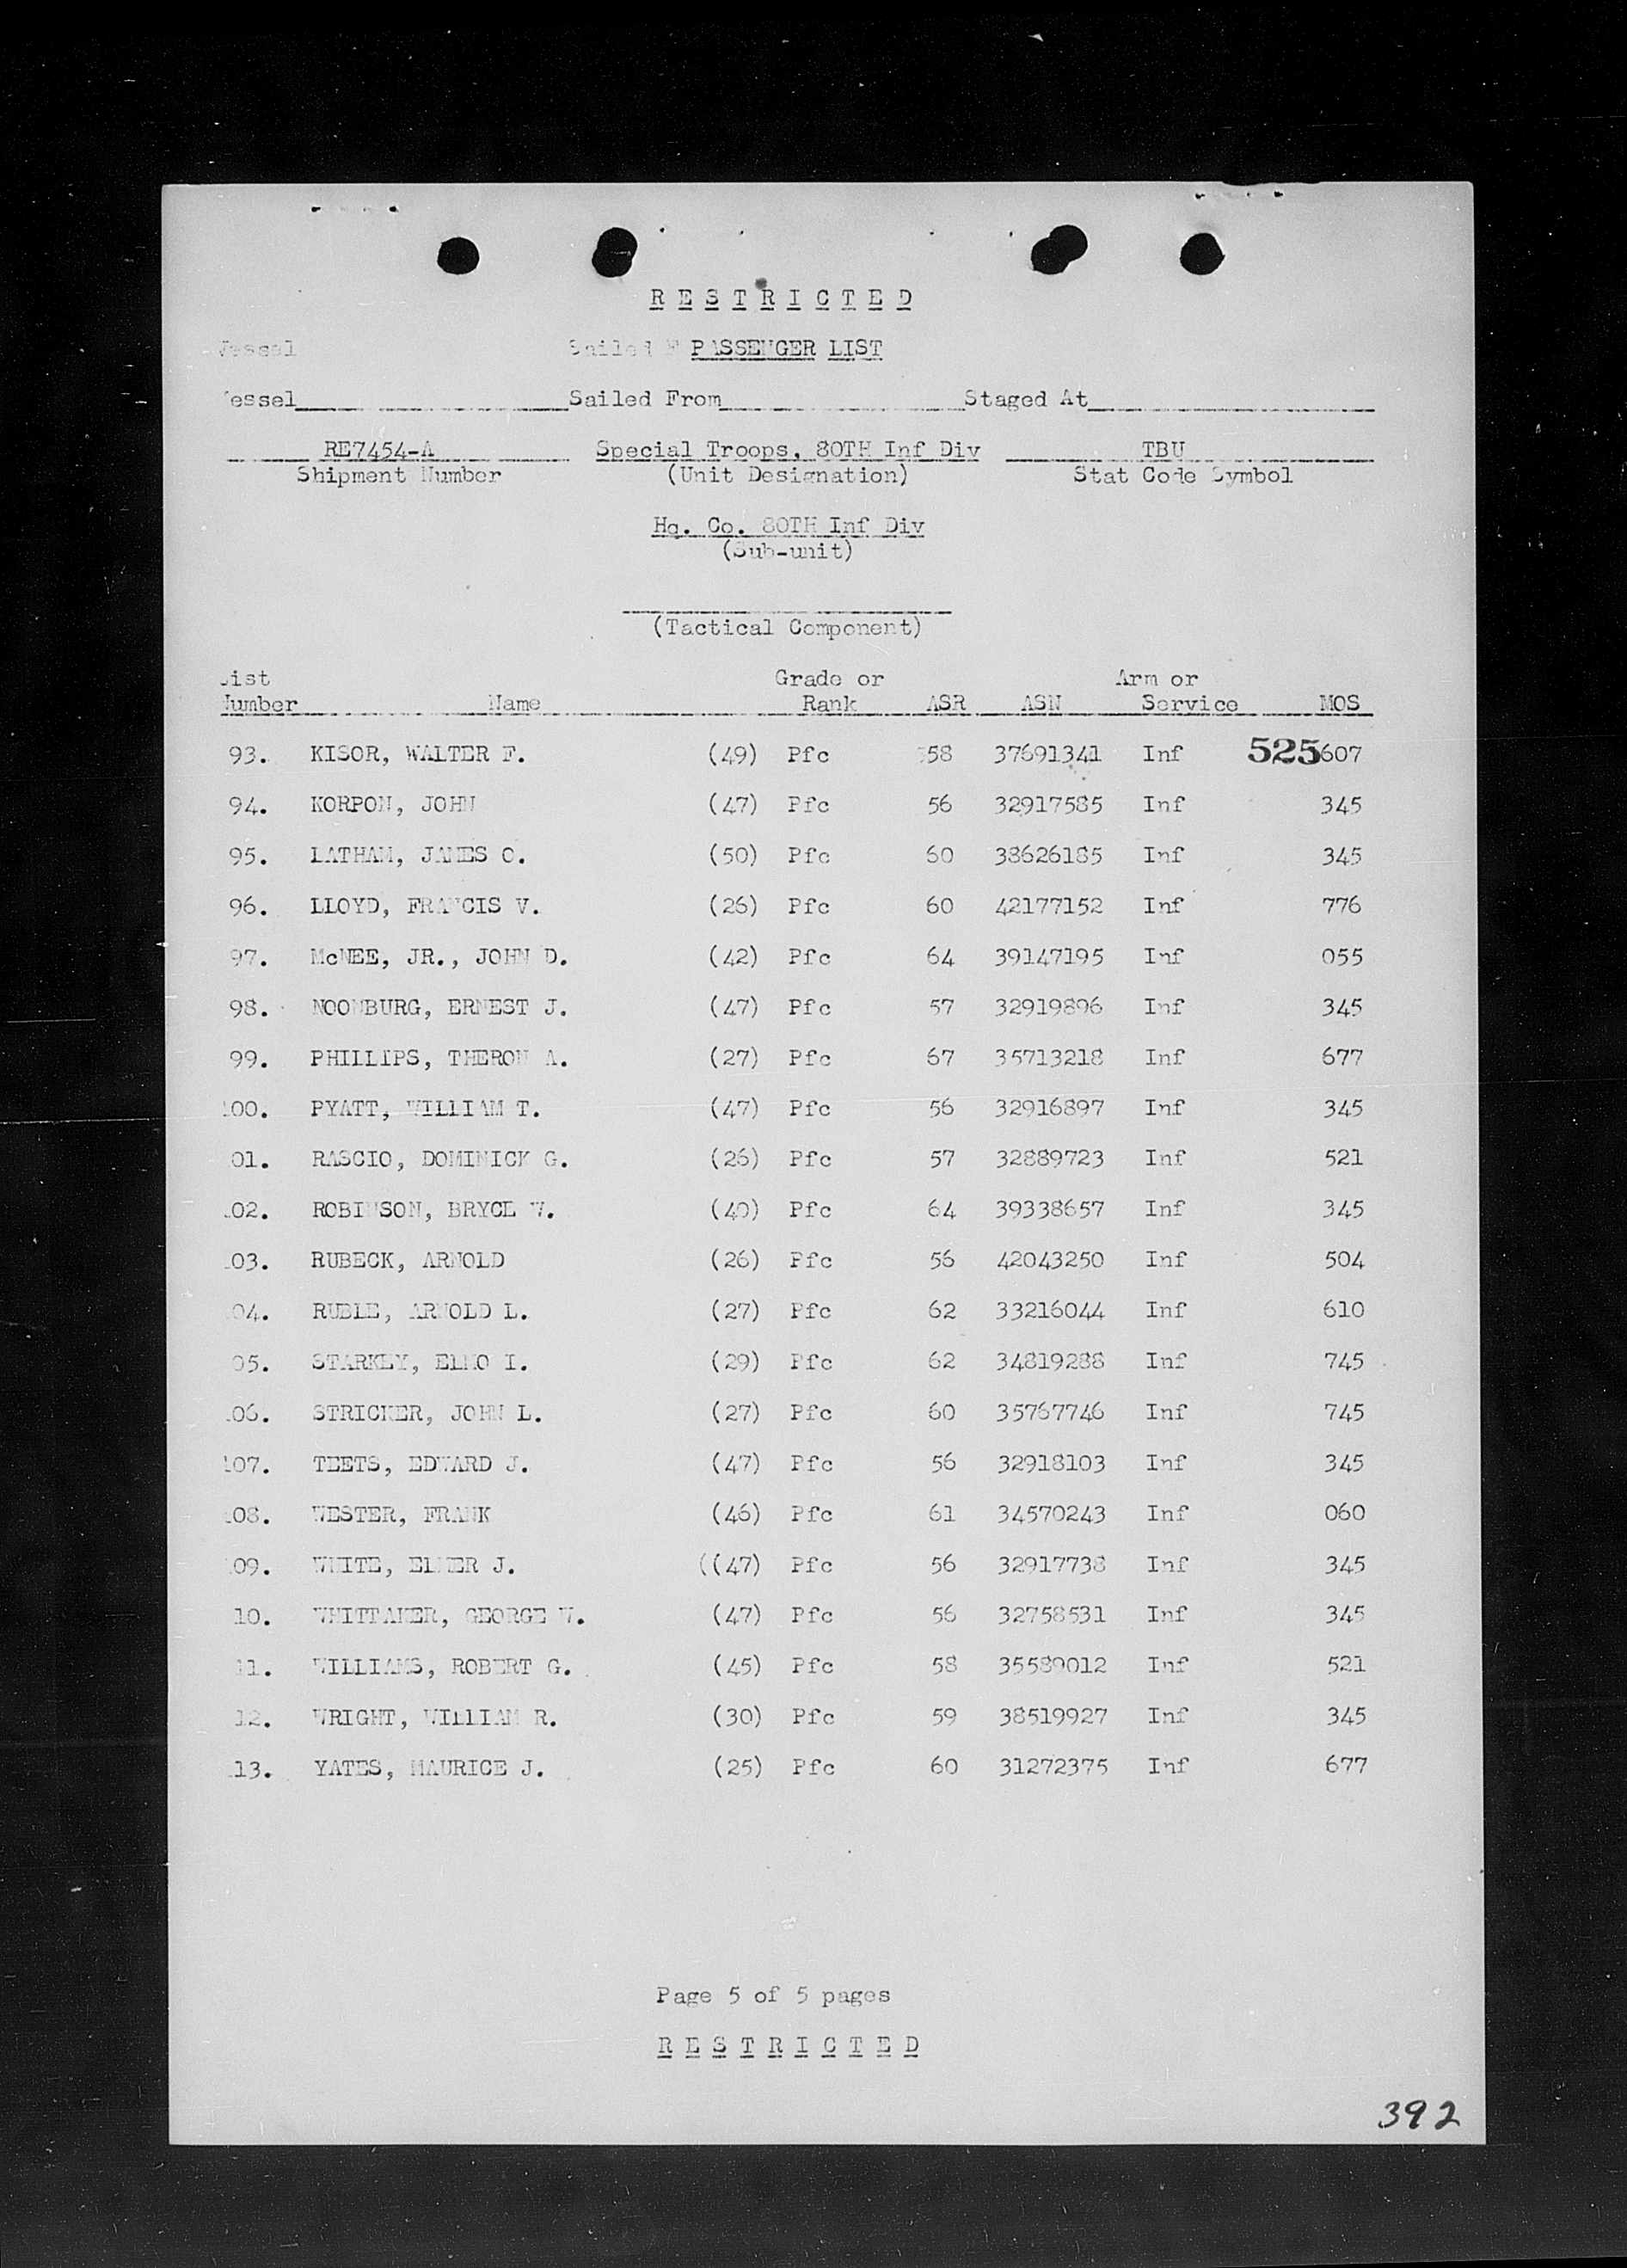 RESTRICTED
Vessel Sailed F PASSENGER LIST
essel Sailed From Staged At
RE7454-A Special Troops, 80TH Inf Div TBU
Shipment Number (Unit Designation) Stat Code Symbol
Hq. Co. 80TH Inf Div
(Sub-unit)
(Tactical Component)
ist Grade or Arm or
Number Name Rank ASR ASN Service MOS
93. KISOR, WALTER F. (49) Pfc 58 37691341 Inf 525 607
94. KORPON, JOHN (47) Pfc 56 32917585 Inf 345
95. LATHAM, JAMES C. (50) Pfc 60 38626185 Inf 345
96. LLOYD, FRANCIS V. (26) Pfc 60 42177152 Inf 776
97. McNEE, JR., JOHN D. (42) Pfc 64 39147195 Inf 055
98. NOONBURG, ERNEST J. (47) Pfc 57 32919896 Inf 345
99. PHILLIPS, THERON A. (27) Pfc 67 35713218 Inf 677
100. PYATT, WILLIAM T. (47) Pfc 56 32916897 Inf 345
01. RASCIO, DOMINICK G. (26) Pfc 57 32889723 Inf 521
02. ROBINSON, BRYCE W. (40) Pfc 64 39338657 Inf 345
03. RUBECK, ARNOLD (26) Pfc 56 42043250 Inf 504
04. RUBLE, ARNOLD L. (27) Pfc 62 33216044 Inf 610
05. STARKEY, ELMO I. (29) Pfc 62 34819288 Inf 745
06. STRICKER, JOHN L. (27) Pfc 60 35767746 Inf 745
107. TEETS, EDWARD J. (47) Pfc 56 32918103 Inf 345
08. WESTER, FRANK (46) Pfc 61 34570243 Inf 060
09. WHITE, ELMER J. ((47) Pfc 56 32917738 Inf 345
10. WHITTAKER, GEORGE W. (47) Pfc 56 32758531 Inf 345
11. WILLIAMS, ROBERT G. (45) Pfc 58 35589012 Inf 521
12. WRIGHT, WILLIAM R. (30) Pfc 59 38519927 Inf 345
13. YATES, MAURICE J. (25) Pfc 60 31272375 Inf 677
Page 5 of 5 pages
RESTRICTED
392